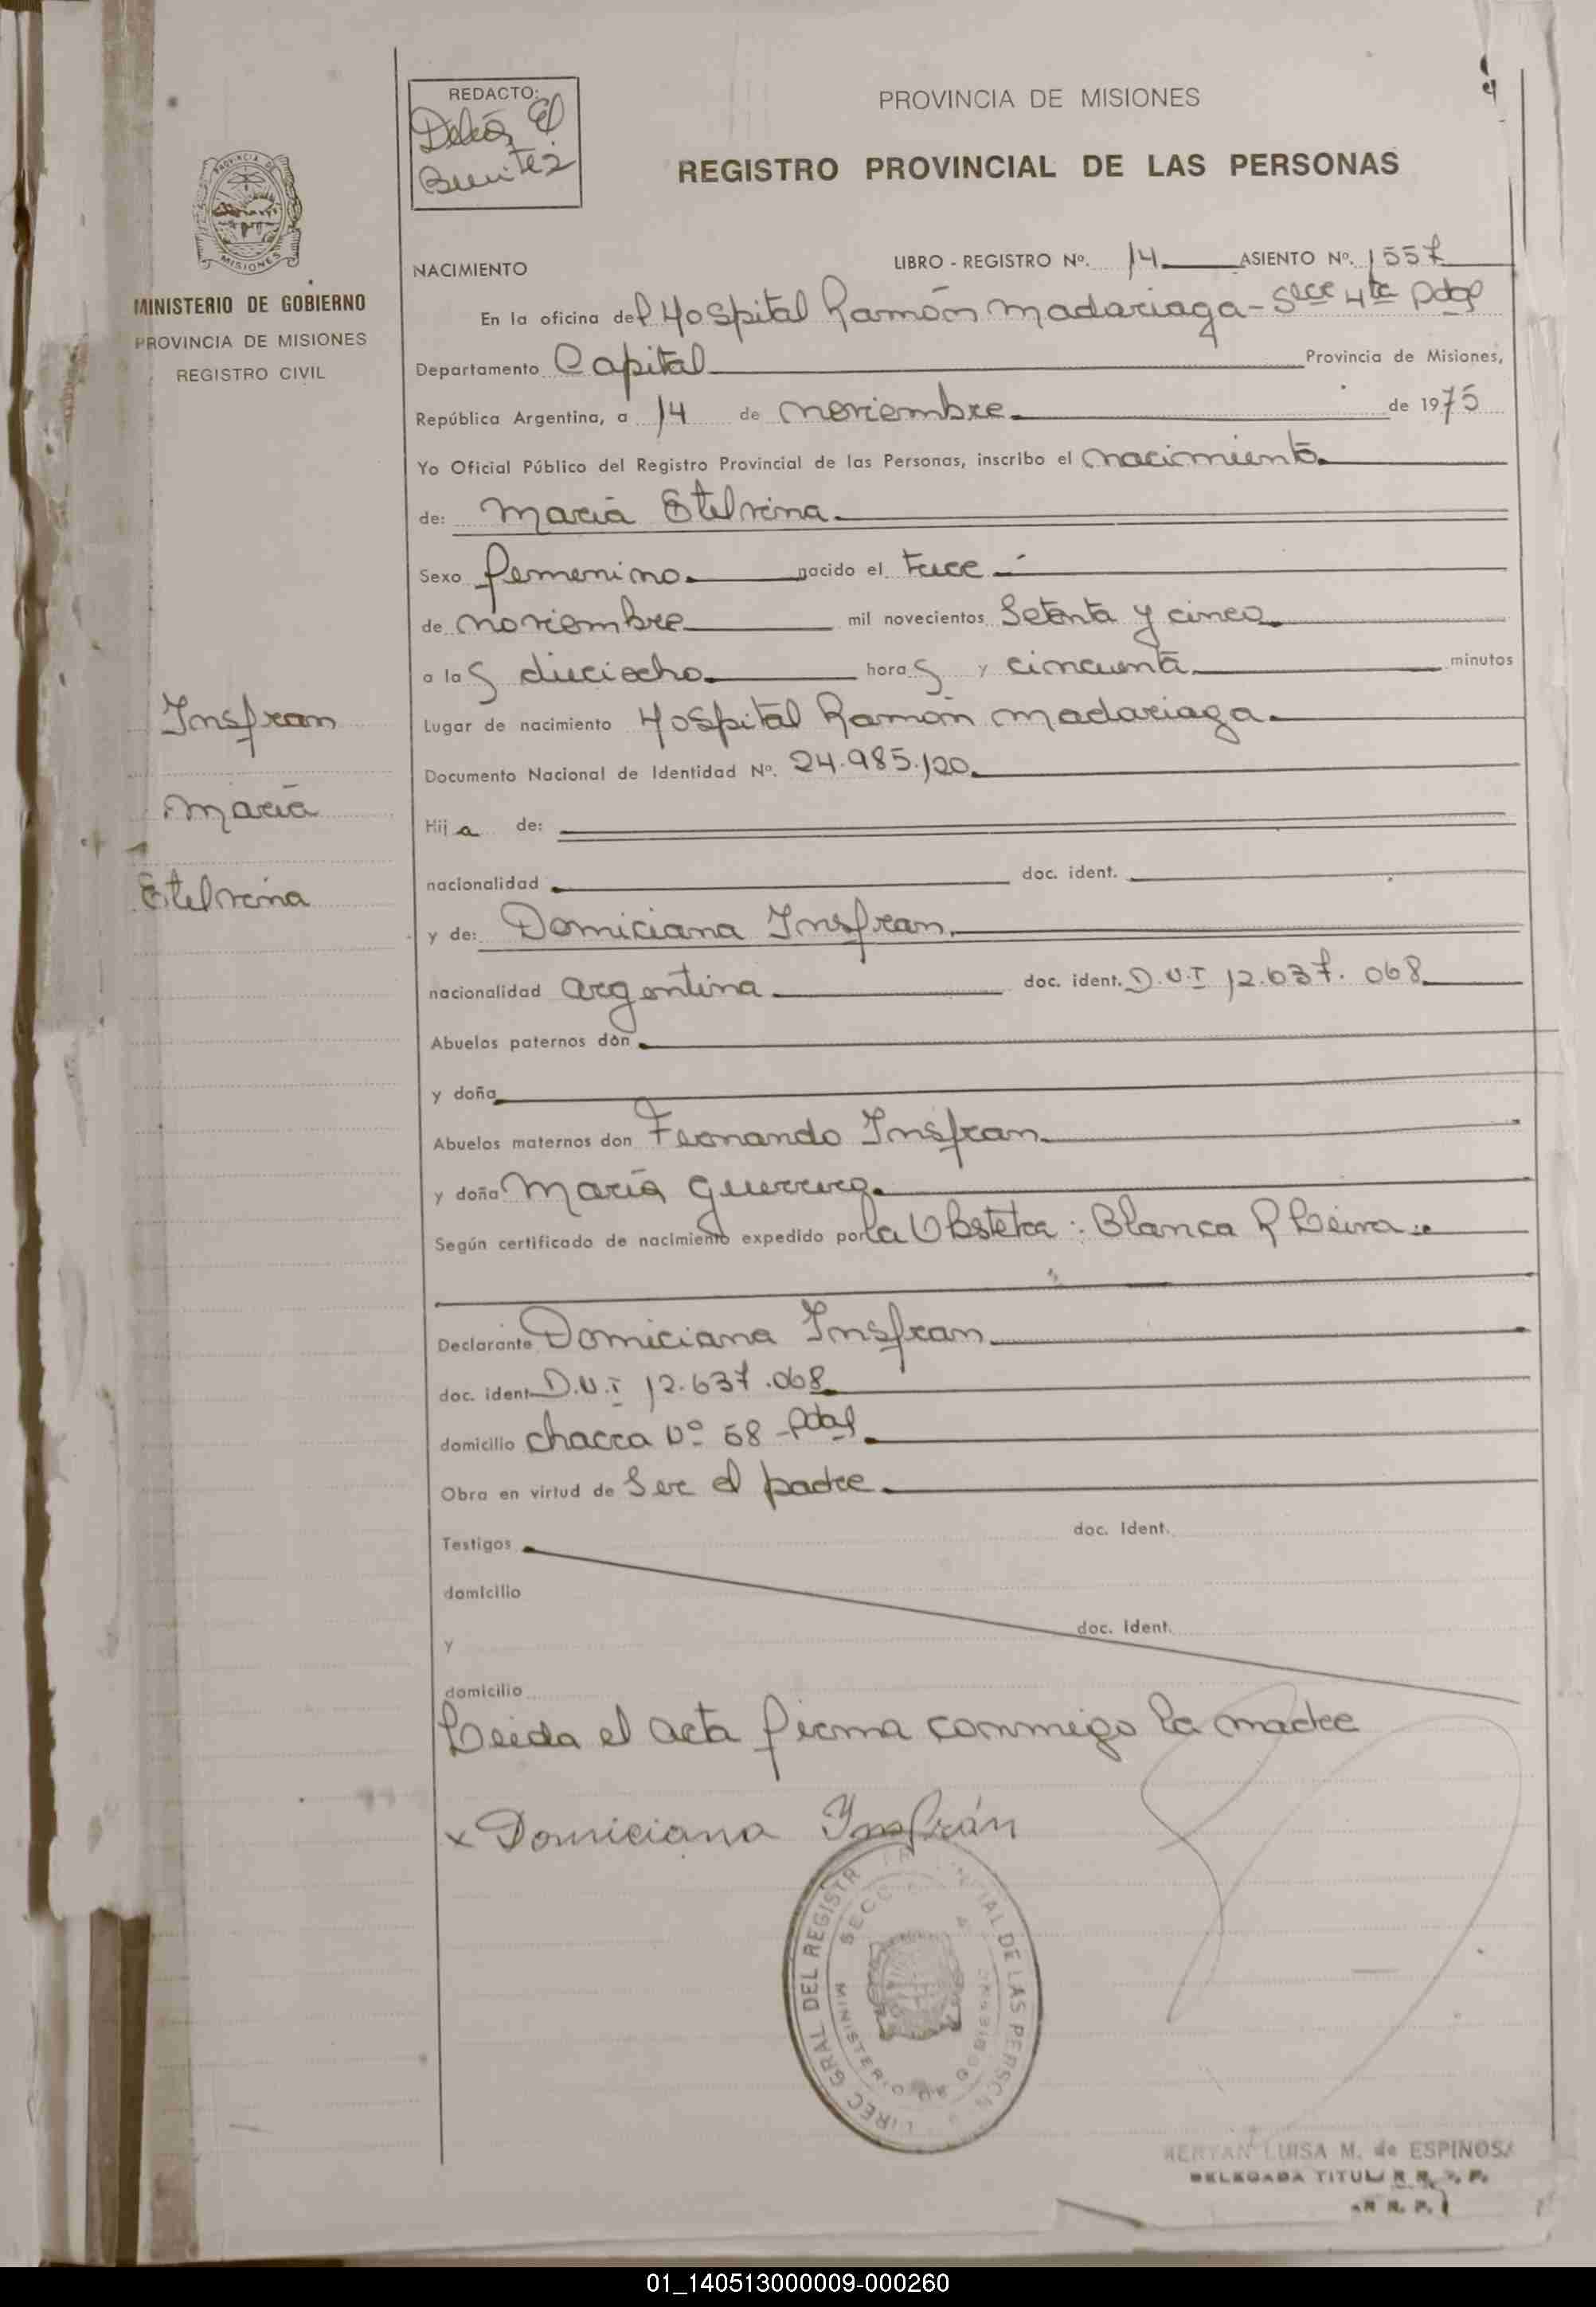 REDACTO:
Benitez
PROVINCIA DE MISIONES
REGISTRO PROVINCIAL DE LAS PERSONAS
PROVINCIA DE
MISIONES
MINISTERIO DE GOBIERNO
PROVINCIA DE MISIONES
REGISTRO CIVIL
NACIMIENTO
LIBRO - REGISTRO Nº. 14 ASIENTO Nº. 1557
En la oficina del Hospital Ramón Madariaga - Secc 4ta Pdas
Departamento Capital Provincia de Misiones,
República Argentina, a 14 de noviembre de 1975
Yo Oficial Público del Registro Provincial de las Personas, inscribo el nacimiento
de: María Etelvina
Sexo femenino nacido el trece
de noviembre mil novecientos Setenta y cinco
a las dieciocho horas y cincuenta minutos
Lugar de nacimiento Hospital Ramón Madariaga
Documento Nacional de Identidad Nº. 24.985.120
Hija de:
nacionalidad doc. ident.
y de: Domiciana Insfran
nacionalidad argentina doc. ident. D.N.I 12.637.068
Abuelos paternos don
y doña
Abuelos maternos don Fernando Insfran
y doña María Guerrero
Según certificado de nacimiento expedido por la Obstetra: Blanca R Leiva
Declarante Domiciana Insfran
doc. ident D.N.I 12.637.068
domicilio chacra Nº 68 - Pdas
Obra en virtud de Ser el padre
Testigos doc. Ident.
domicilio
y doc. Ident.
domicilio
Leida el acta firma conmigo la madre
x Domiciana Insfrán
Insfran
María
Etelvina
DIREC GRAL DEL REGISTR DE LAS PERSON
MINISTERIO DE GOBIERNO
LUISA M. de ESPINOSA
DELEGADA TITULAR R. P. P.
01_140513000009-000260